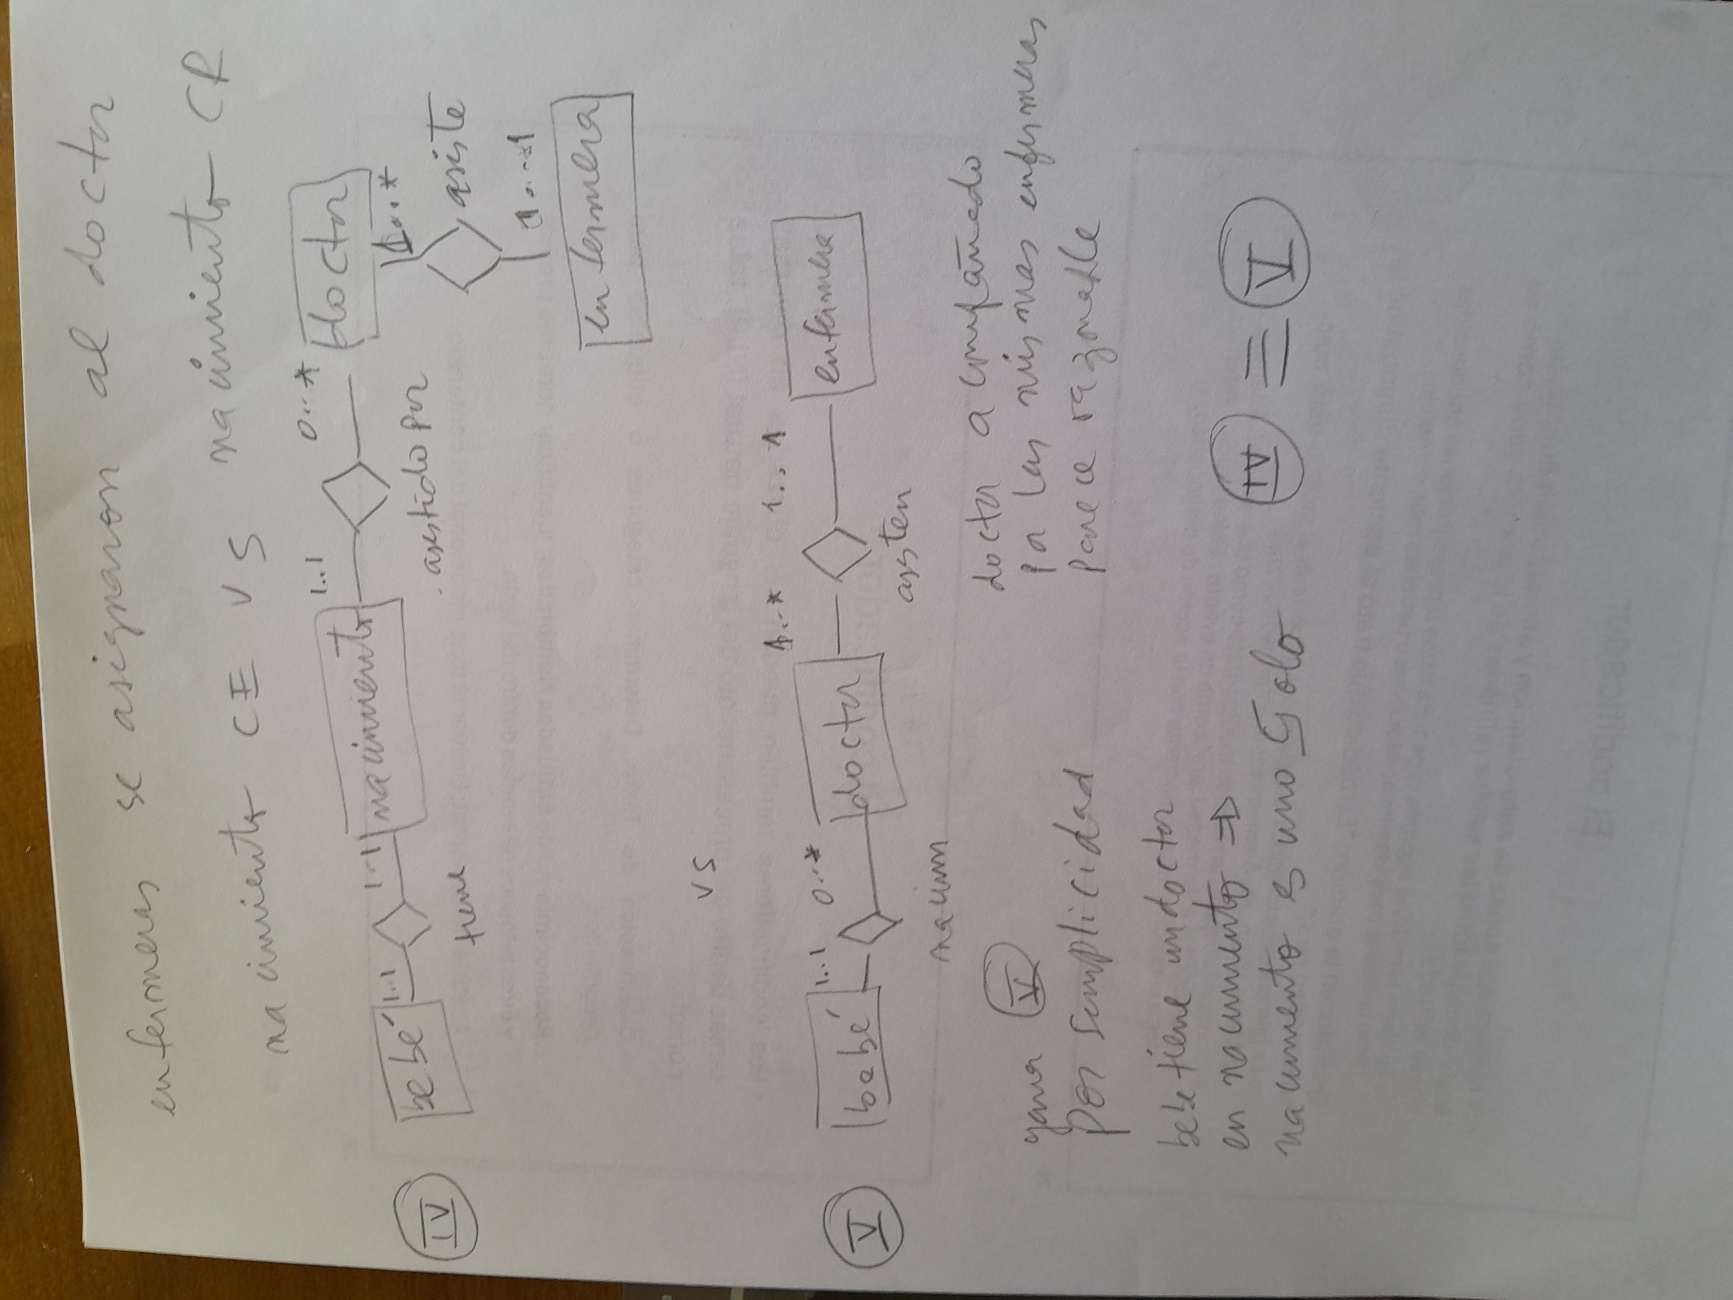 enfermeras se asignaron al doctor
nacimiento CE VS nacimiento CR
IV
bebé 1..1 tiene 1..1 nacimiento 1..1 asistido por 0..* doctor
1...* asiste
1...1
enfermera
VS
V
bebé 1..1 nacieron 0..* doctor 1...* asisten 1...1 enfermera
gana V
por simplicidad
doctor acompañado
por las mismas enfermeras
parece razonable
bebe tiene un doctor
en nacimiento ⇒
nacimiento es uno solo
IV ≡ V